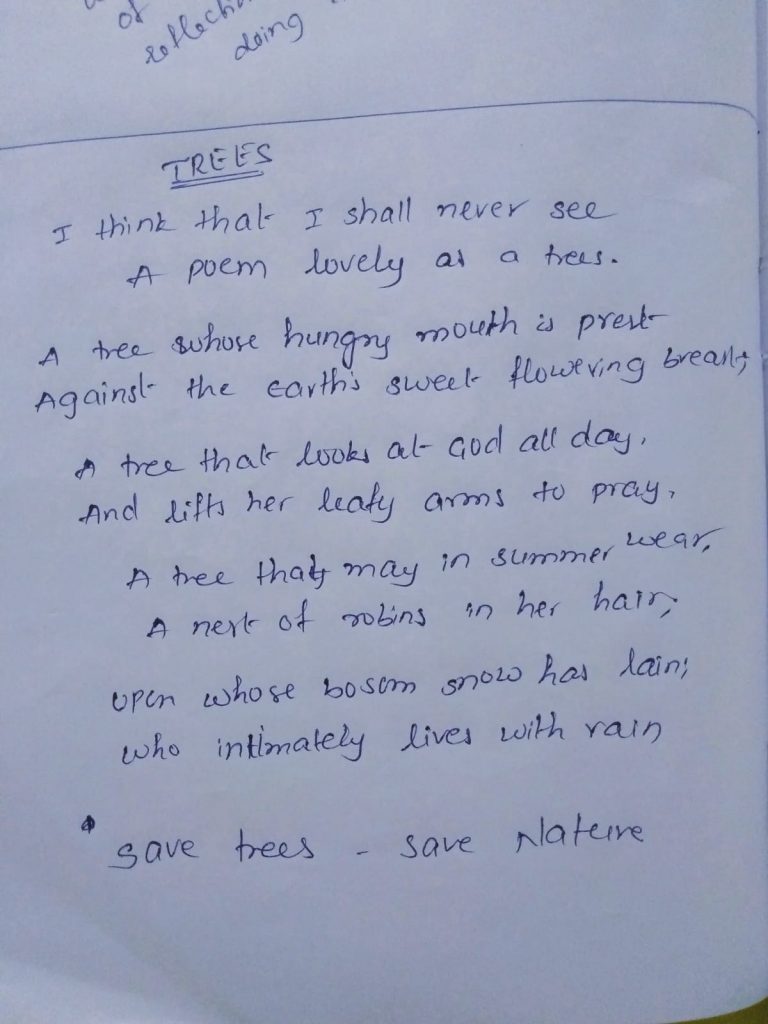 of
reflection
doing
TREES
I think that I shall never see
A poem lovely as a trees.
A tree whose hungry mouth is prest
Against the earth's sweet flowering breast;
A tree that looks at God all day,
And lifts her leafy arms to pray,
A tree that may in summer wear,
A nest of robins in her hair;
upon whose bosom snow has lain;
who intimately lives with rain
save trees - save Nature